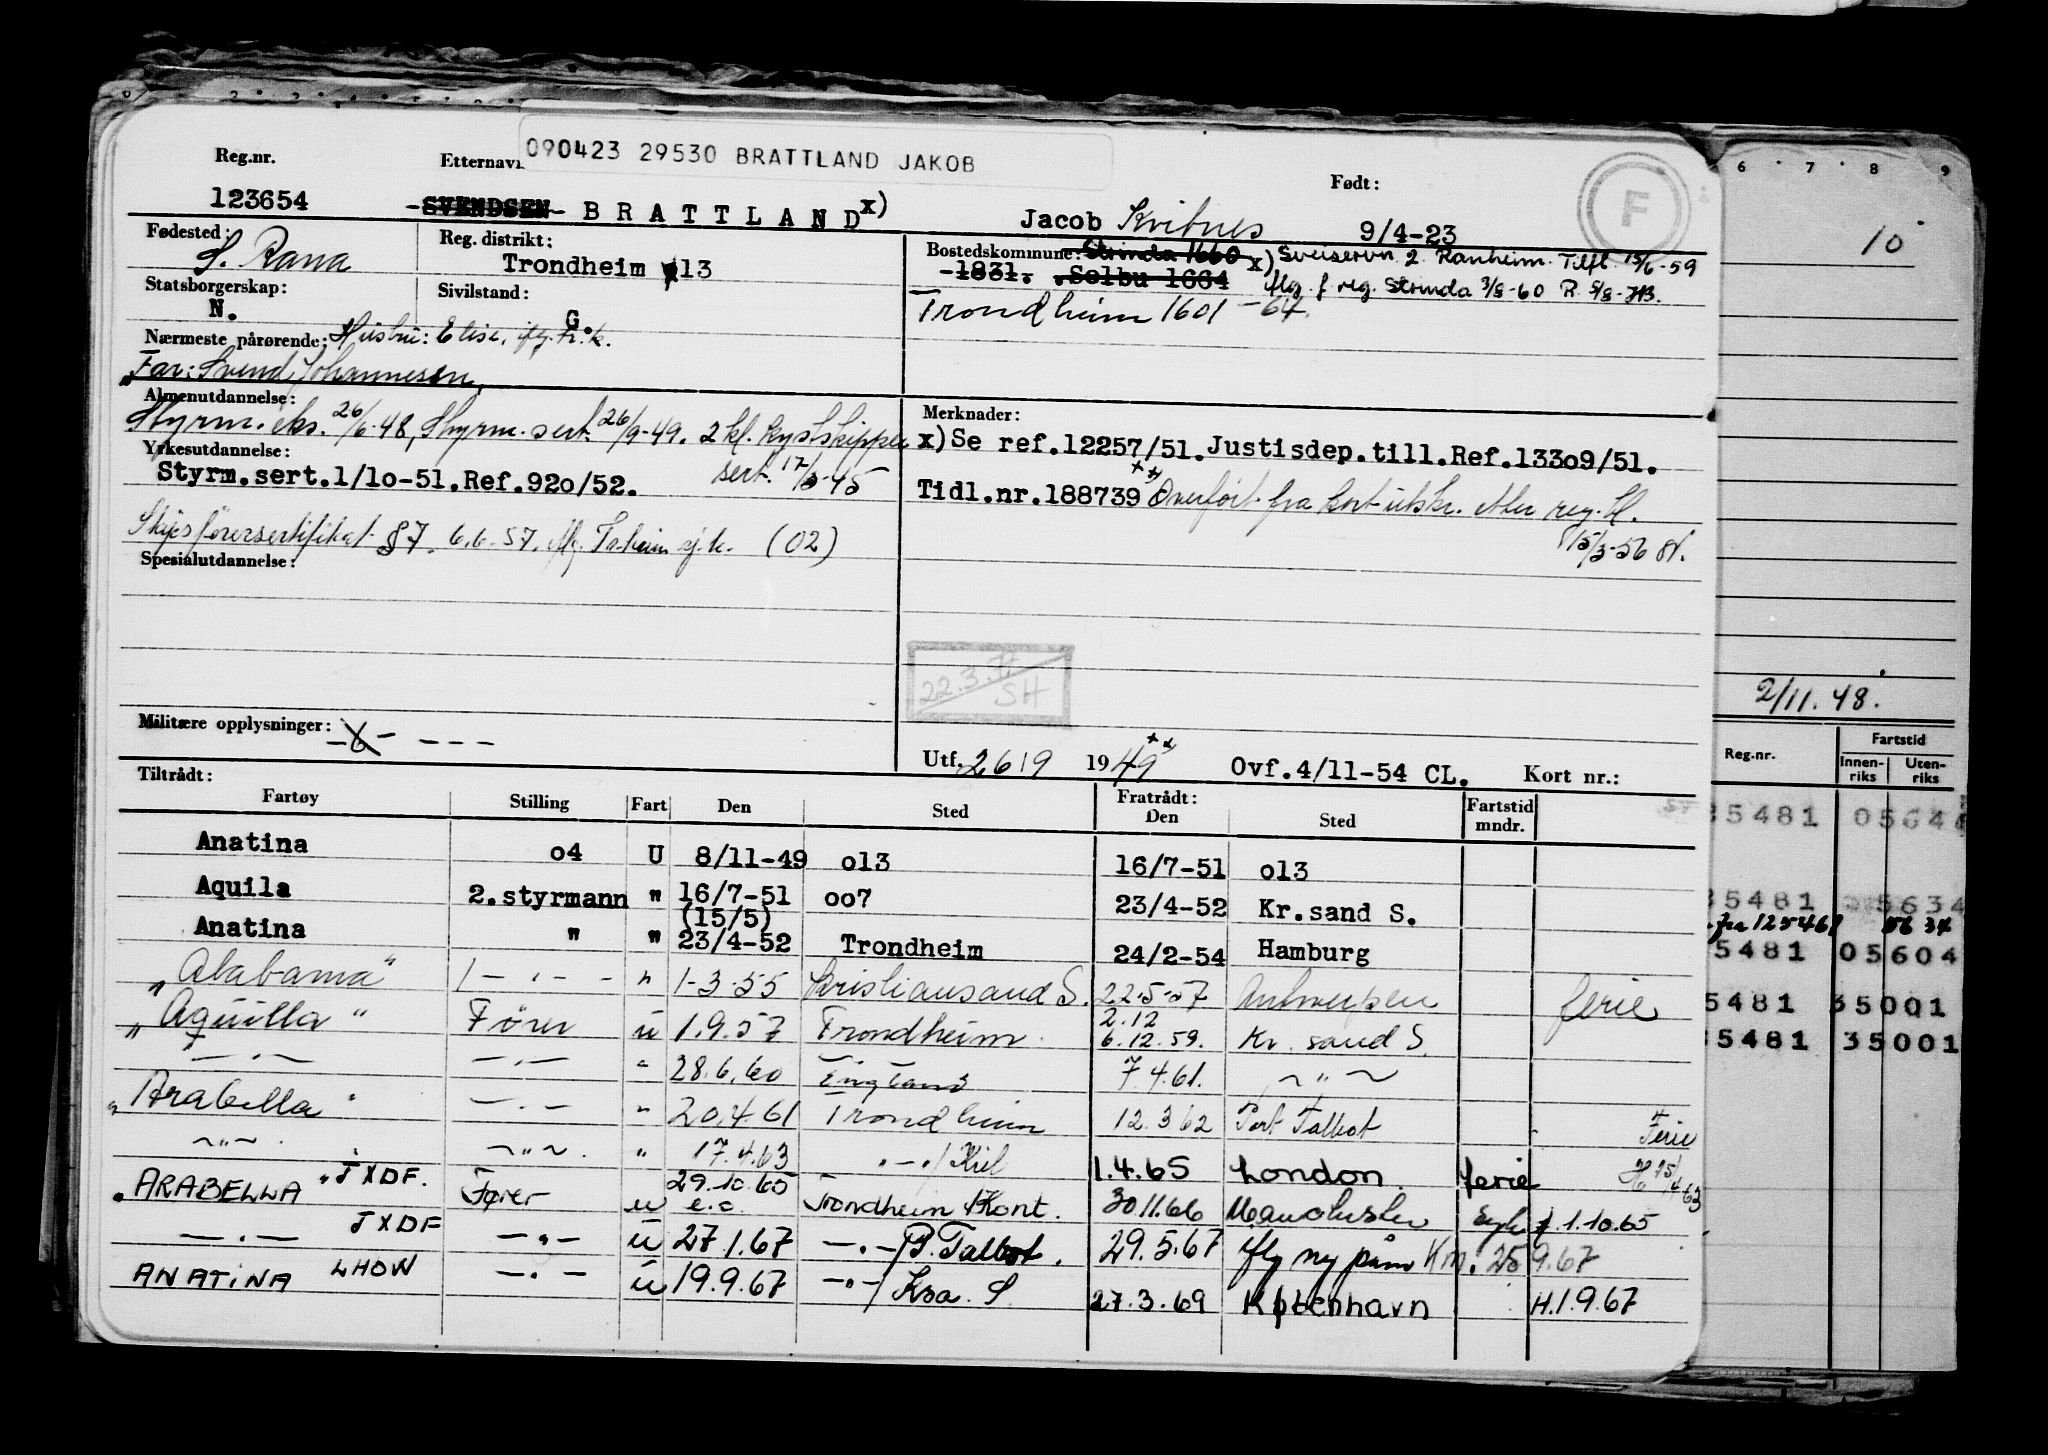 090423 29530 BRATTLAND JAKOB
Reg.nr. Etternavn Født:
F
123654 -SVENDSEN- BRATTLAND x) Jacob Kvitnes 9/4-23
Fødested: S. Rana
Reg. distrikt: Trondheim 013
Bostedskommune: Strinda 1660 x) Sveiservn. 2. Ranheim. Tilfl. 15/6-59
-1831. Selbu 1664 iflg. f. reg. Strinda 3/8-60 R. 5/8-
Trondheim 1601 -64.
Statsborgerskap: N.
Sivilstand: G.
Nærmeste pårørende: Hustru: Elise, iflg. h.k.
Far: Svend Johannesen,
Almenutdannelse:
Styrm. eks. 26/6-48, Styrm. sert. 26/9-49. 2 kl. kystskipper
sert. 17/3-45
Yrkesutdannelse:
Styrm.sert.1/10-51.Ref.920/52.
Skipsførersertifikat §7. 6.6-57. (02)
Spesialutdannelse:
Merknader:
x)Se ref.12257/51.Justisdep.till.Ref.13309/51.
Tidl.nr.188739 xx Overført fra kort utskr. etter reg. bl.
15/3-56
22.3.71
SH
Militære opplysninger: - - - -
Utf. 2619 1949 xx Ovf.4/11-54 CL. Kort nr.:
Tiltrådt: Fratrådt:
Fartøy Stilling Fart Den Sted Den Sted Fartstid mndr.
Anatina o4 U 8/11-49 o13 16/7-51 o13
Aquila 2.styrmann " 16/7-51 oo7 23/4-52 Kr.sand S.
(15/5)
Anatina " " 23/4-52 Trondheim 24/2-54 Hamburg
"Alabama" 1 - . - - " 1-3-55 Kristiansand S. 22-5-57 Antwerpen ferie
2.12
"Aquilla" Fører u 1.9.57 Trondheim 6.12.59. Kr. sand S.
- . - - . - " 28.6.60 England 7.4.61. ~ " ~
"Arabella" - . - " 20.4.61 Trondheim 12.3.62 Port Talbot Ferie
~ " ~ . ~ " ~ . " 17.4.63 . - ./Kiel 1.4.65 London. ferie H 15/4 63
29.10.65
"ARABELLA" JXDF. Fører u e.c. Trondheim /Kont. 30.11.66 Manchester Syk f. 1.10.65
- . - JXDF - " - u 27.1.67 - . -/P. Talbot. 29.5.67 iflg ny påm Km. 25.9.67
ANATINA LHOW - . - u 19.9.67 - " -/ Krs. S. 27.3.69 København H.1.9.67
6 7 8 9
10
2/11.48.
Reg.nr. Fartstid
Innenriks Utenriks
5481 05644
5481 5634
fra 125461 5634
5481 05604
5481 35001
5481 35001